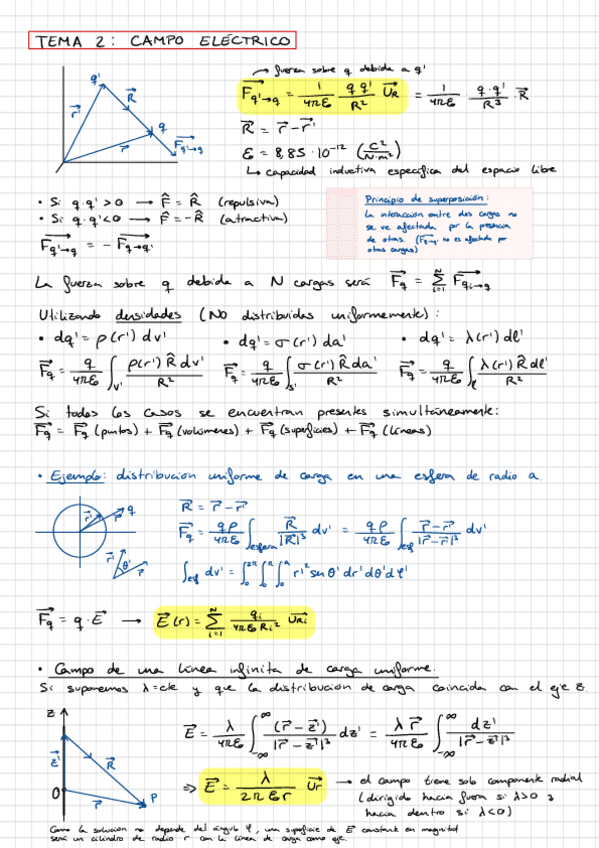 TEMA 2: CAMPO ELÉCTRICO
→ fuerza sobre q debida a q'
q' R⃗ q r⃗' r⃗ F⃗q'→q
F⃗q'→q = 1/4πε₀ q q'/R² U⃗R = 1/4πε₀ · q·q'/R³ · R⃗
R⃗ = r⃗ - r⃗'
ε = 8,85 · 10⁻¹² (C²/N·m²)
↳ capacidad inductiva especifica del espacio libre
• Si q·q' > 0 → F̂ = R̂ (repulsiva)
• Si q·q' < 0 → F̂ = -R̂ (atractiva)
F⃗q'→q = - F⃗q→q'
Principio de superposición:
La interacción entre dos cargas no
se ve afectada por la presencia
de otras. (F⃗q→q' no es afectada por
otras cargas)
La fuerza sobre q debida a N cargas será F⃗q = Σᵢ₌₁ᴺ F⃗qi→q
Utilizando densidades (No distribuidas uniformemente):
• dq' = ρ(r') dv' • dq' = σ(r') da' • dq' = λ(r') dl'
F⃗q = q/4πε₀ ∫v' ρ(r') R̂ dv'/R² F⃗q = q/4πε₀ ∫s' σ(r') R̂ da'/R² F⃗q = q/4πε₀ ∫ℓ λ(r') R̂ dl'/R²
Si todos los casos se encuentran presentes simultáneamente:
F⃗q = F⃗q (puntos) + F⃗q (volúmenes) + F⃗q (superficies) + F⃗q (líneas)
• Ejemplo: distribución uniforme de carga en una esfera de radio a
R⃗ = r⃗ - r⃗'
F⃗q = qρ/4πε₀ ∫esfera R⃗/|R⃗|³ dv' = qρ/4πε₀ ∫esf r⃗-r⃗'/|r⃗-r⃗'|³ dv'
∫esf dv' = ∫₀²π ∫₀π ∫₀ᵃ r'² sen θ' dr' dθ' dφ'
r⃗' q r⃗' θ' r⃗
F⃗q = q·E⃗ → E⃗(r) = Σᵢ₌₁ᴺ qi/4πε₀ Ri² U⃗Ri
• Campo de una línea infinita de carga uniforme.
Si suponemos λ=cte y que la distribución de carga coincida con el eje z.
z z⃗' R⃗ 0 r⃗ P
E⃗ = λ/4πε₀ ∫₋∞^∞ (r⃗-z⃗')/|r⃗-z⃗'|³ dz' = λ r⃗/4πε₀ ∫₋∞^∞ dz'/|r⃗-z⃗'|³
⇒ E⃗ = λ/2πε₀r U⃗r → el campo tiene solo componente radial
(dirigido hacia fuera si λ>0 y
hacia dentro si λ<0)
Como la solución no depende del ángulo φ, una superficie de E⃗ constante en magnitud
será un cilindro de radio r con la línea de carga como eje.